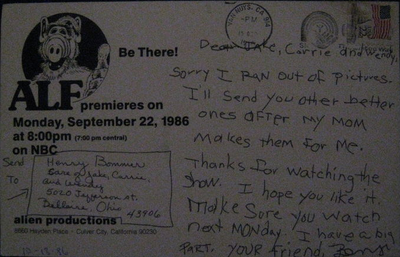 Be There!
ALF premieres on
Monday, September 22, 1986
at 8:00pm (7:00 pm central)
on NBC
Send
To
Henry Bommer
and Wendy
5020 Jefferson St.
Bellaire, Ohio
43906
alien productions
Hayden Place - Culver City, California 90230
Carrie and Wendy,
Sorry I Ran out of pictures.
I'll Send you other better
ones after my mom
makes them for me.
Thanks for watching the
Show. I hope you like it.
Make Sure you watch
next Monday. I have a big
PART. your friend,